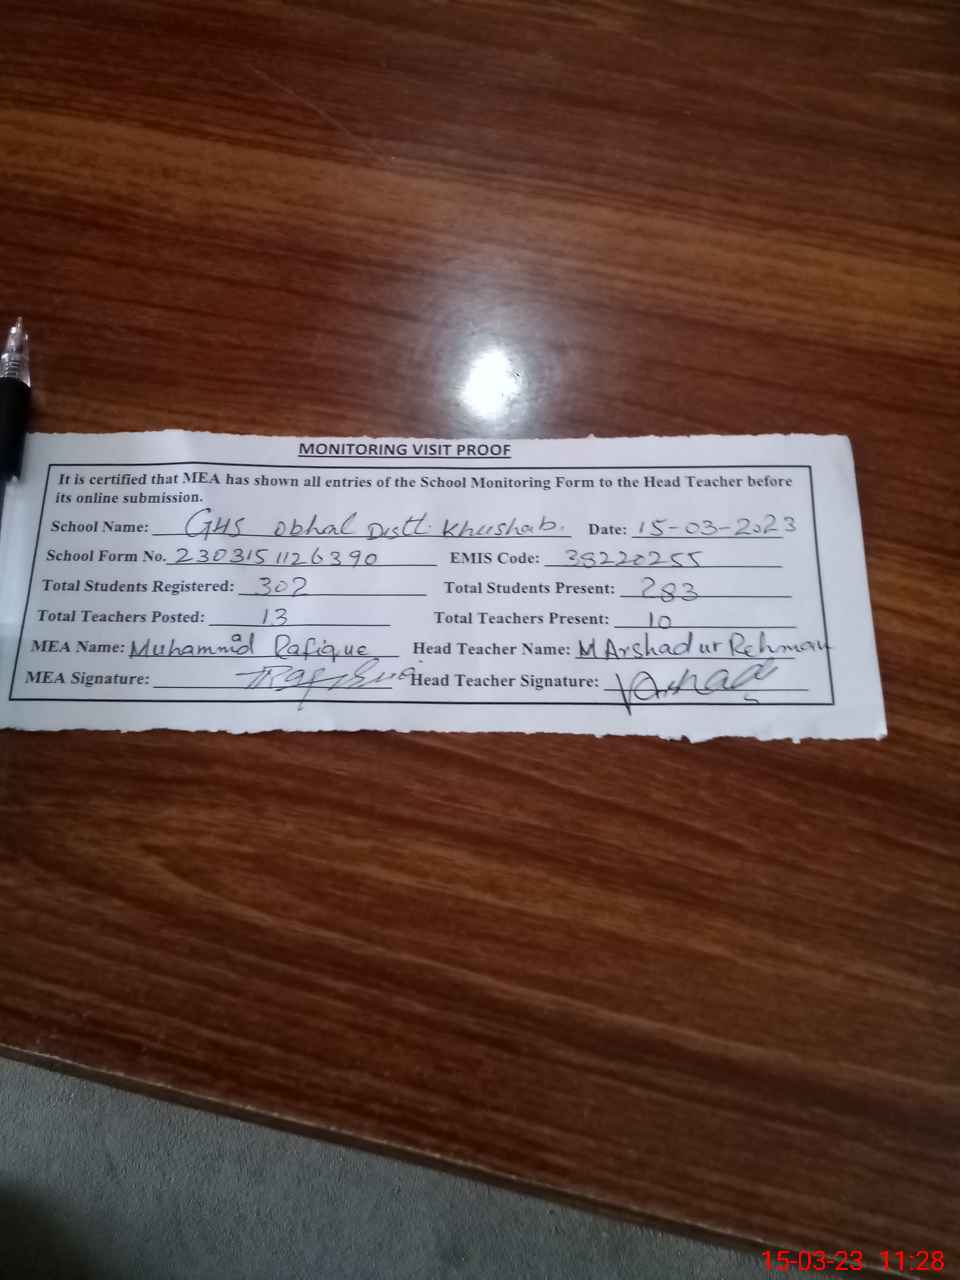 MONITORING VISIT PROOF
It is certified that MEA has shown all entries of the School Monitoring Form to the Head Teacher before
its online submission.
School Name: GHS Obhal Distt. Khushab. Date: 15-03-2023
School Form No. 230315 1126390 EMIS Code: 38220255
Total Students Registered: 302 Total Students Present: 283
Total Teachers Posted: 13 Total Teachers Present: 10
MEA Name: Muhammad Rafique Head Teacher Name: M Arshad ur Rehman
MEA Signature: Head Teacher Signature:
15-03-23 11:28